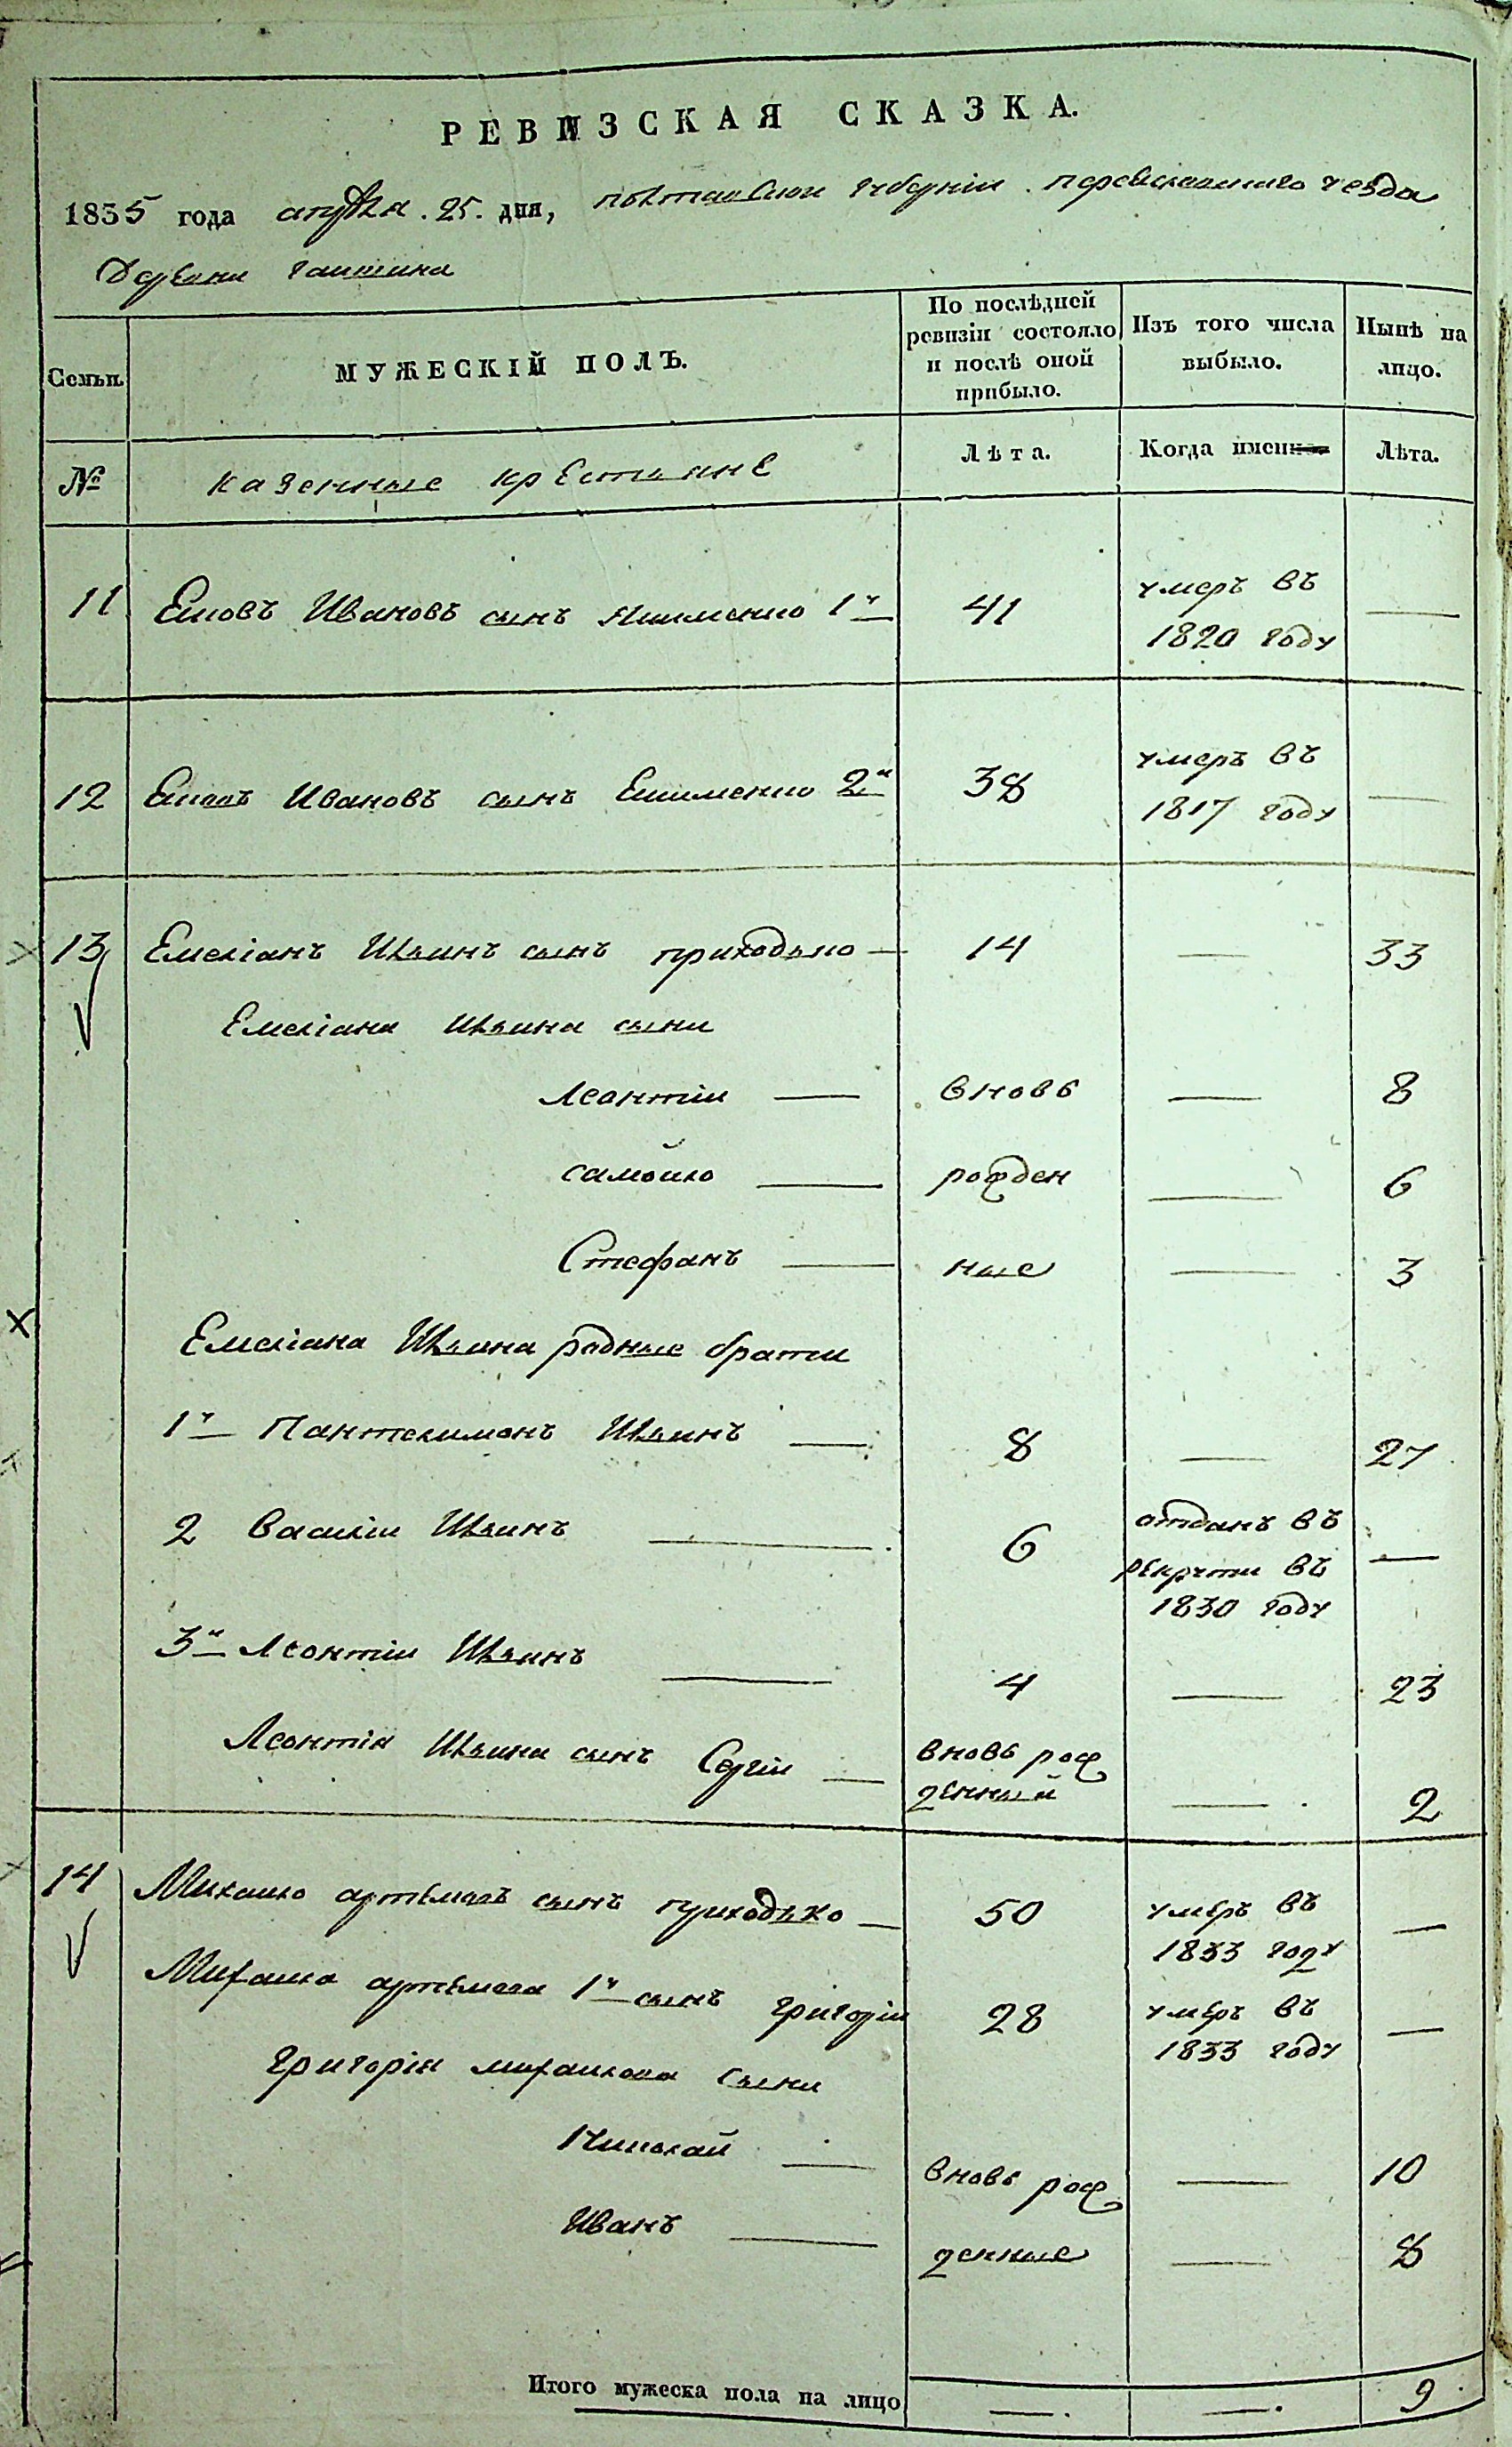 РЕВИЗСКАЯ СКАЗКА.
1835 года апреля 25. дня, полтавской губернии переяславского уезда
Деревни
Семьи. МУЖЕСКІЙ ПОЛЪ. По послѣдней ревизіи состояло и послѣ оной прибыло. Изъ того числа выбыло. Нынѣ на лицо.
№ казенные крестьяне Лѣта. Когда именно Лѣта.
11 Ивановъ сынъ 1й 41 умеръ въ —
1820 году
12 Ивановъ сынъ 2й 38 умеръ въ —
1817 году
13 Емеліанъ Ильинъ сынъ приходько — 14 — 33
Емеліана Ильина сыни
Леонтіи — вновь — 8
самойло — рожден — 6
Стефанъ — ные — 3
Емеліана Ильина родные братии
1й Пантелимонъ Ильинъ — 8 — 27
2 Василіи Ильинъ — 6 отданъ въ —
рекрути въ
1830 году
3й Леонтіи Ильинъ — 4 — 23
Леонтія Ильина сынъ Сергіи — вновь рож
денный — 2
14 Михаило артемовъ сынъ приходько — 50 умеръ въ —
1833 году
Михаила артемова 1й сынъ григоріи 28 умеръ въ —
1833 году
григорія михаилова сыни
Николай — вновь рож — 10
Иванъ — денные — 8
Итого мужеска пола на лицо — . — . 9